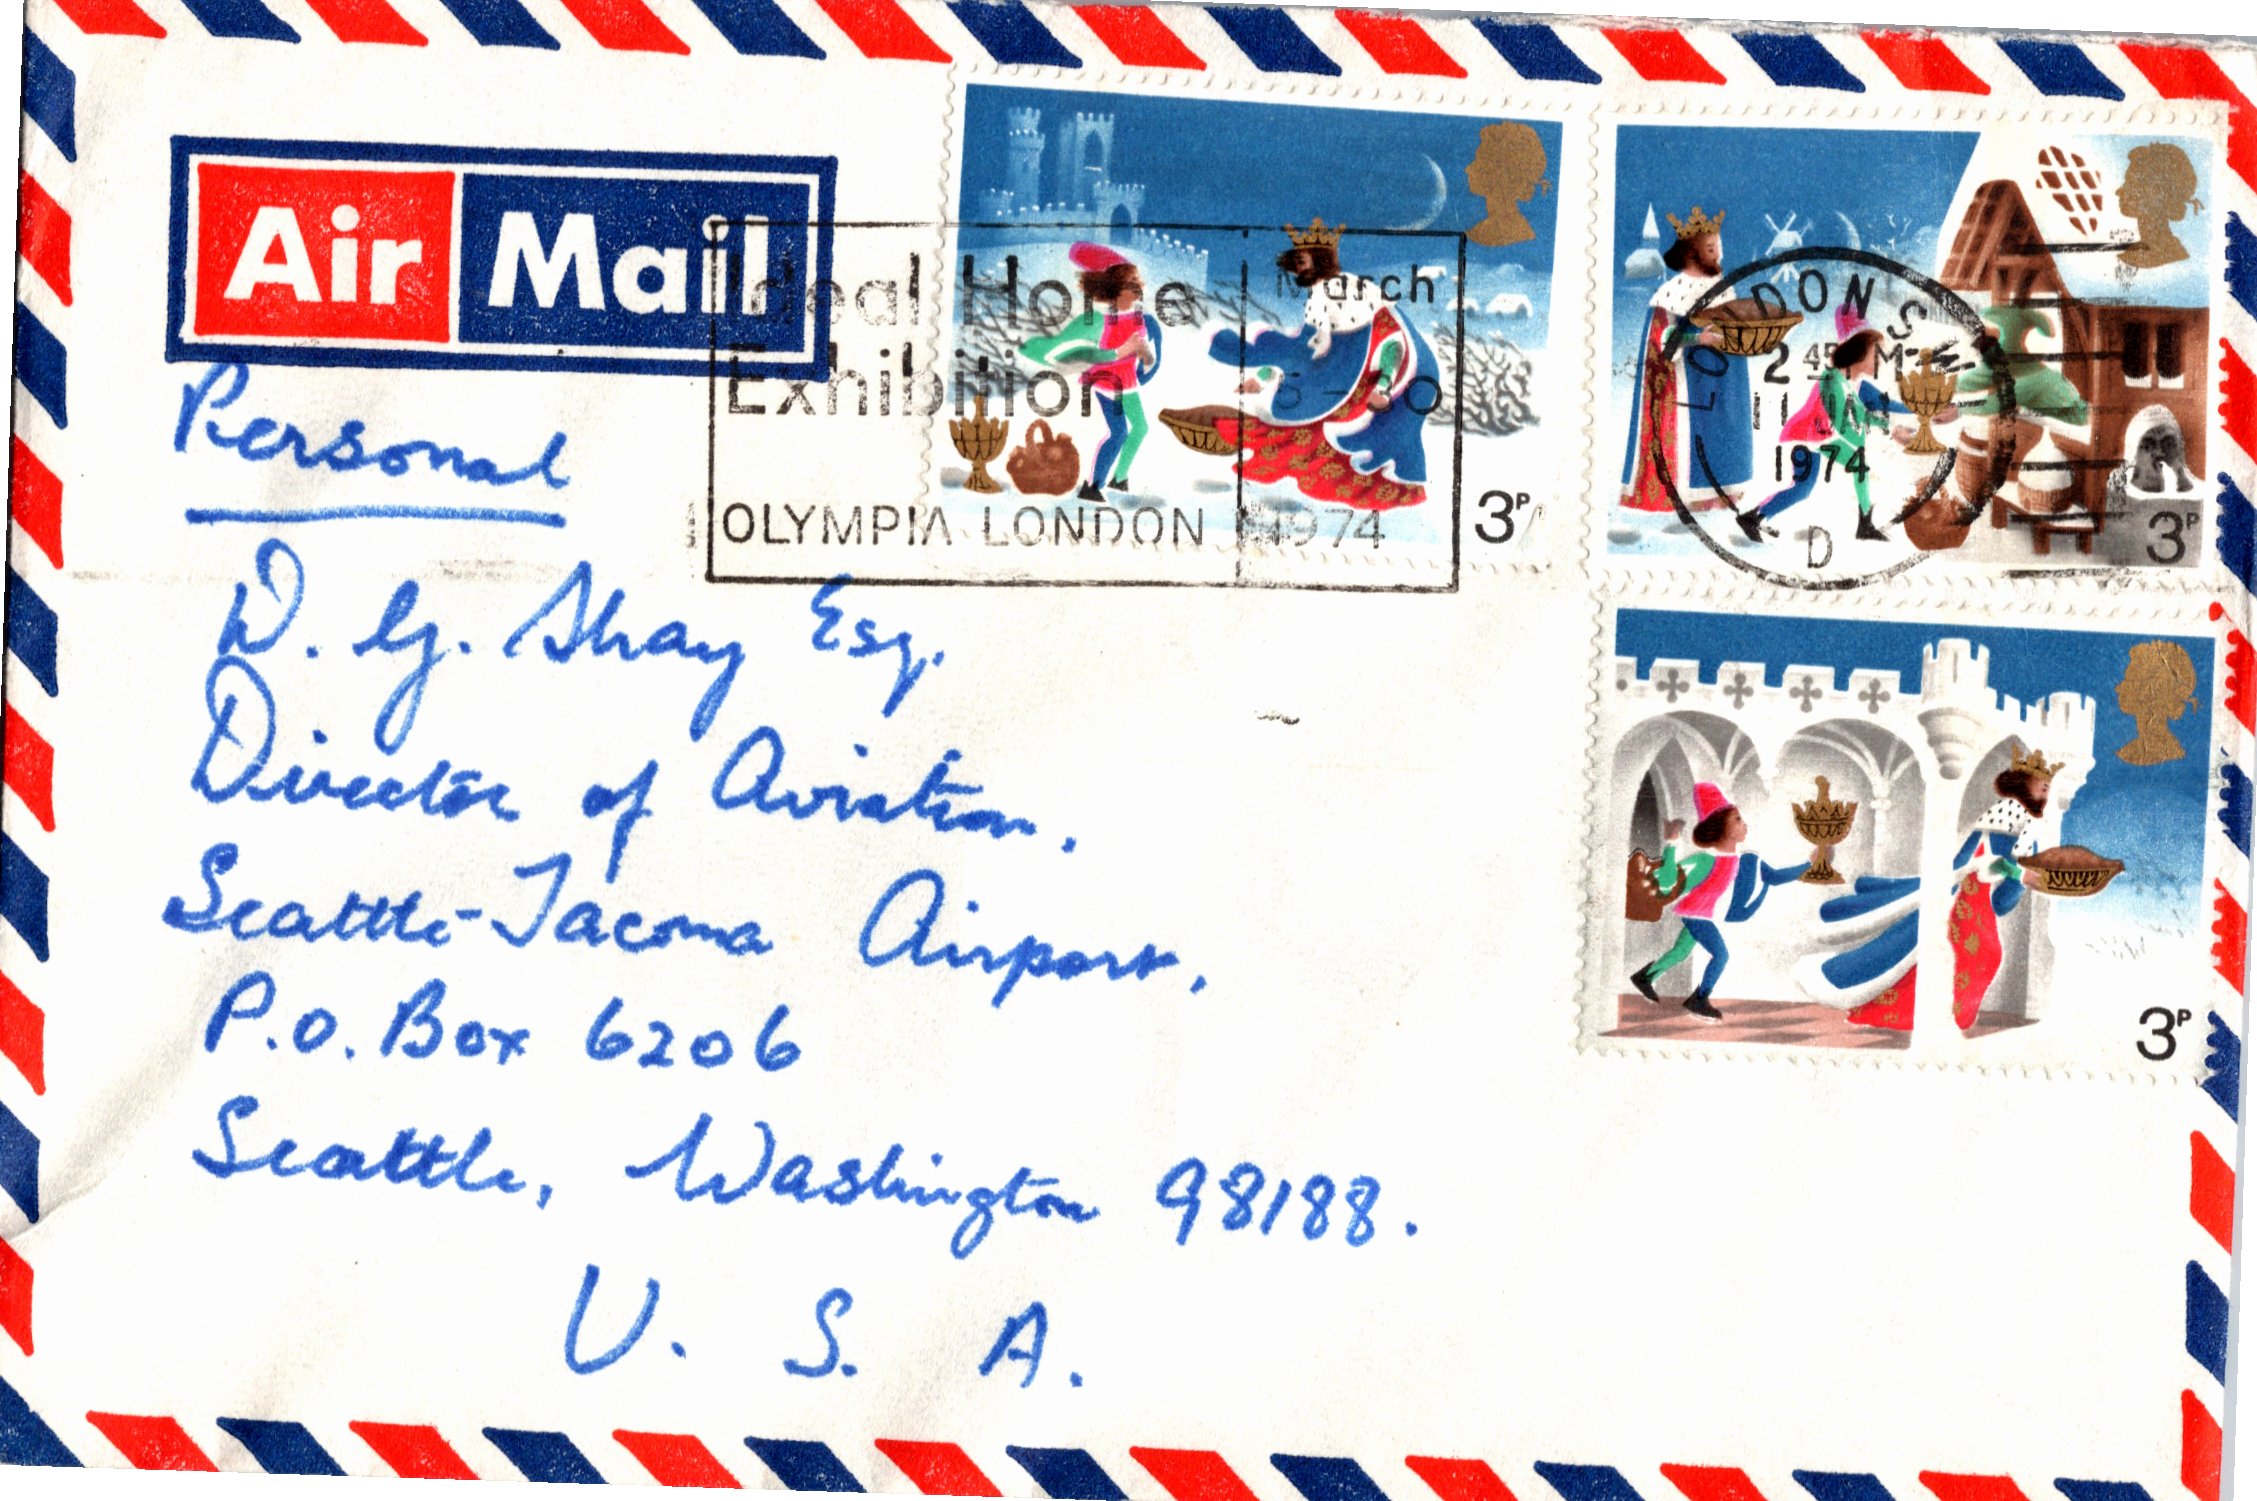 Air Mail
Ideal Home
Exhibition
March
5-30
OLYMPIA LONDON 1974
LONDON S.W.
2 45 PM
11 JAN
1974
D
3P
3P
3P
Personal
D. G. Shay Esq.
Director of Aviation,
Seattle-Tacoma Airport,
P.O. Box 6206
Seattle, Washington 98188.
U. S. A.